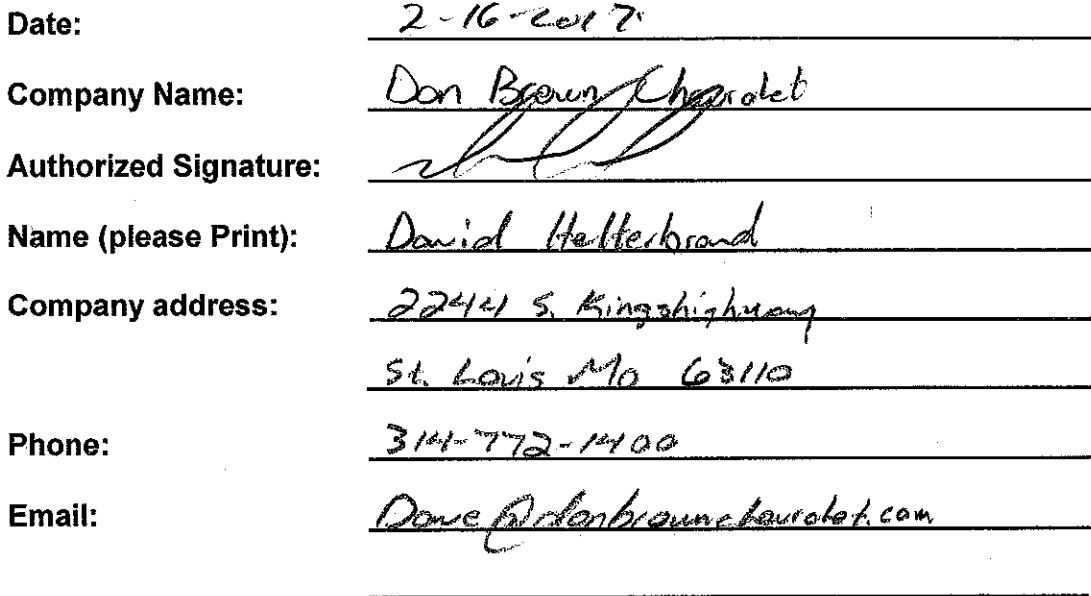 Date: 2-16-2017
Company Name: Don Brown Chevrolet
Authorized Signature:
Name (please Print): David Helterbrand
Company address: 2244 S. Kingshighway
St. Louis Mo 63110
Phone: 314-772-1400
Email: Dave@donbrownchevrolet.com